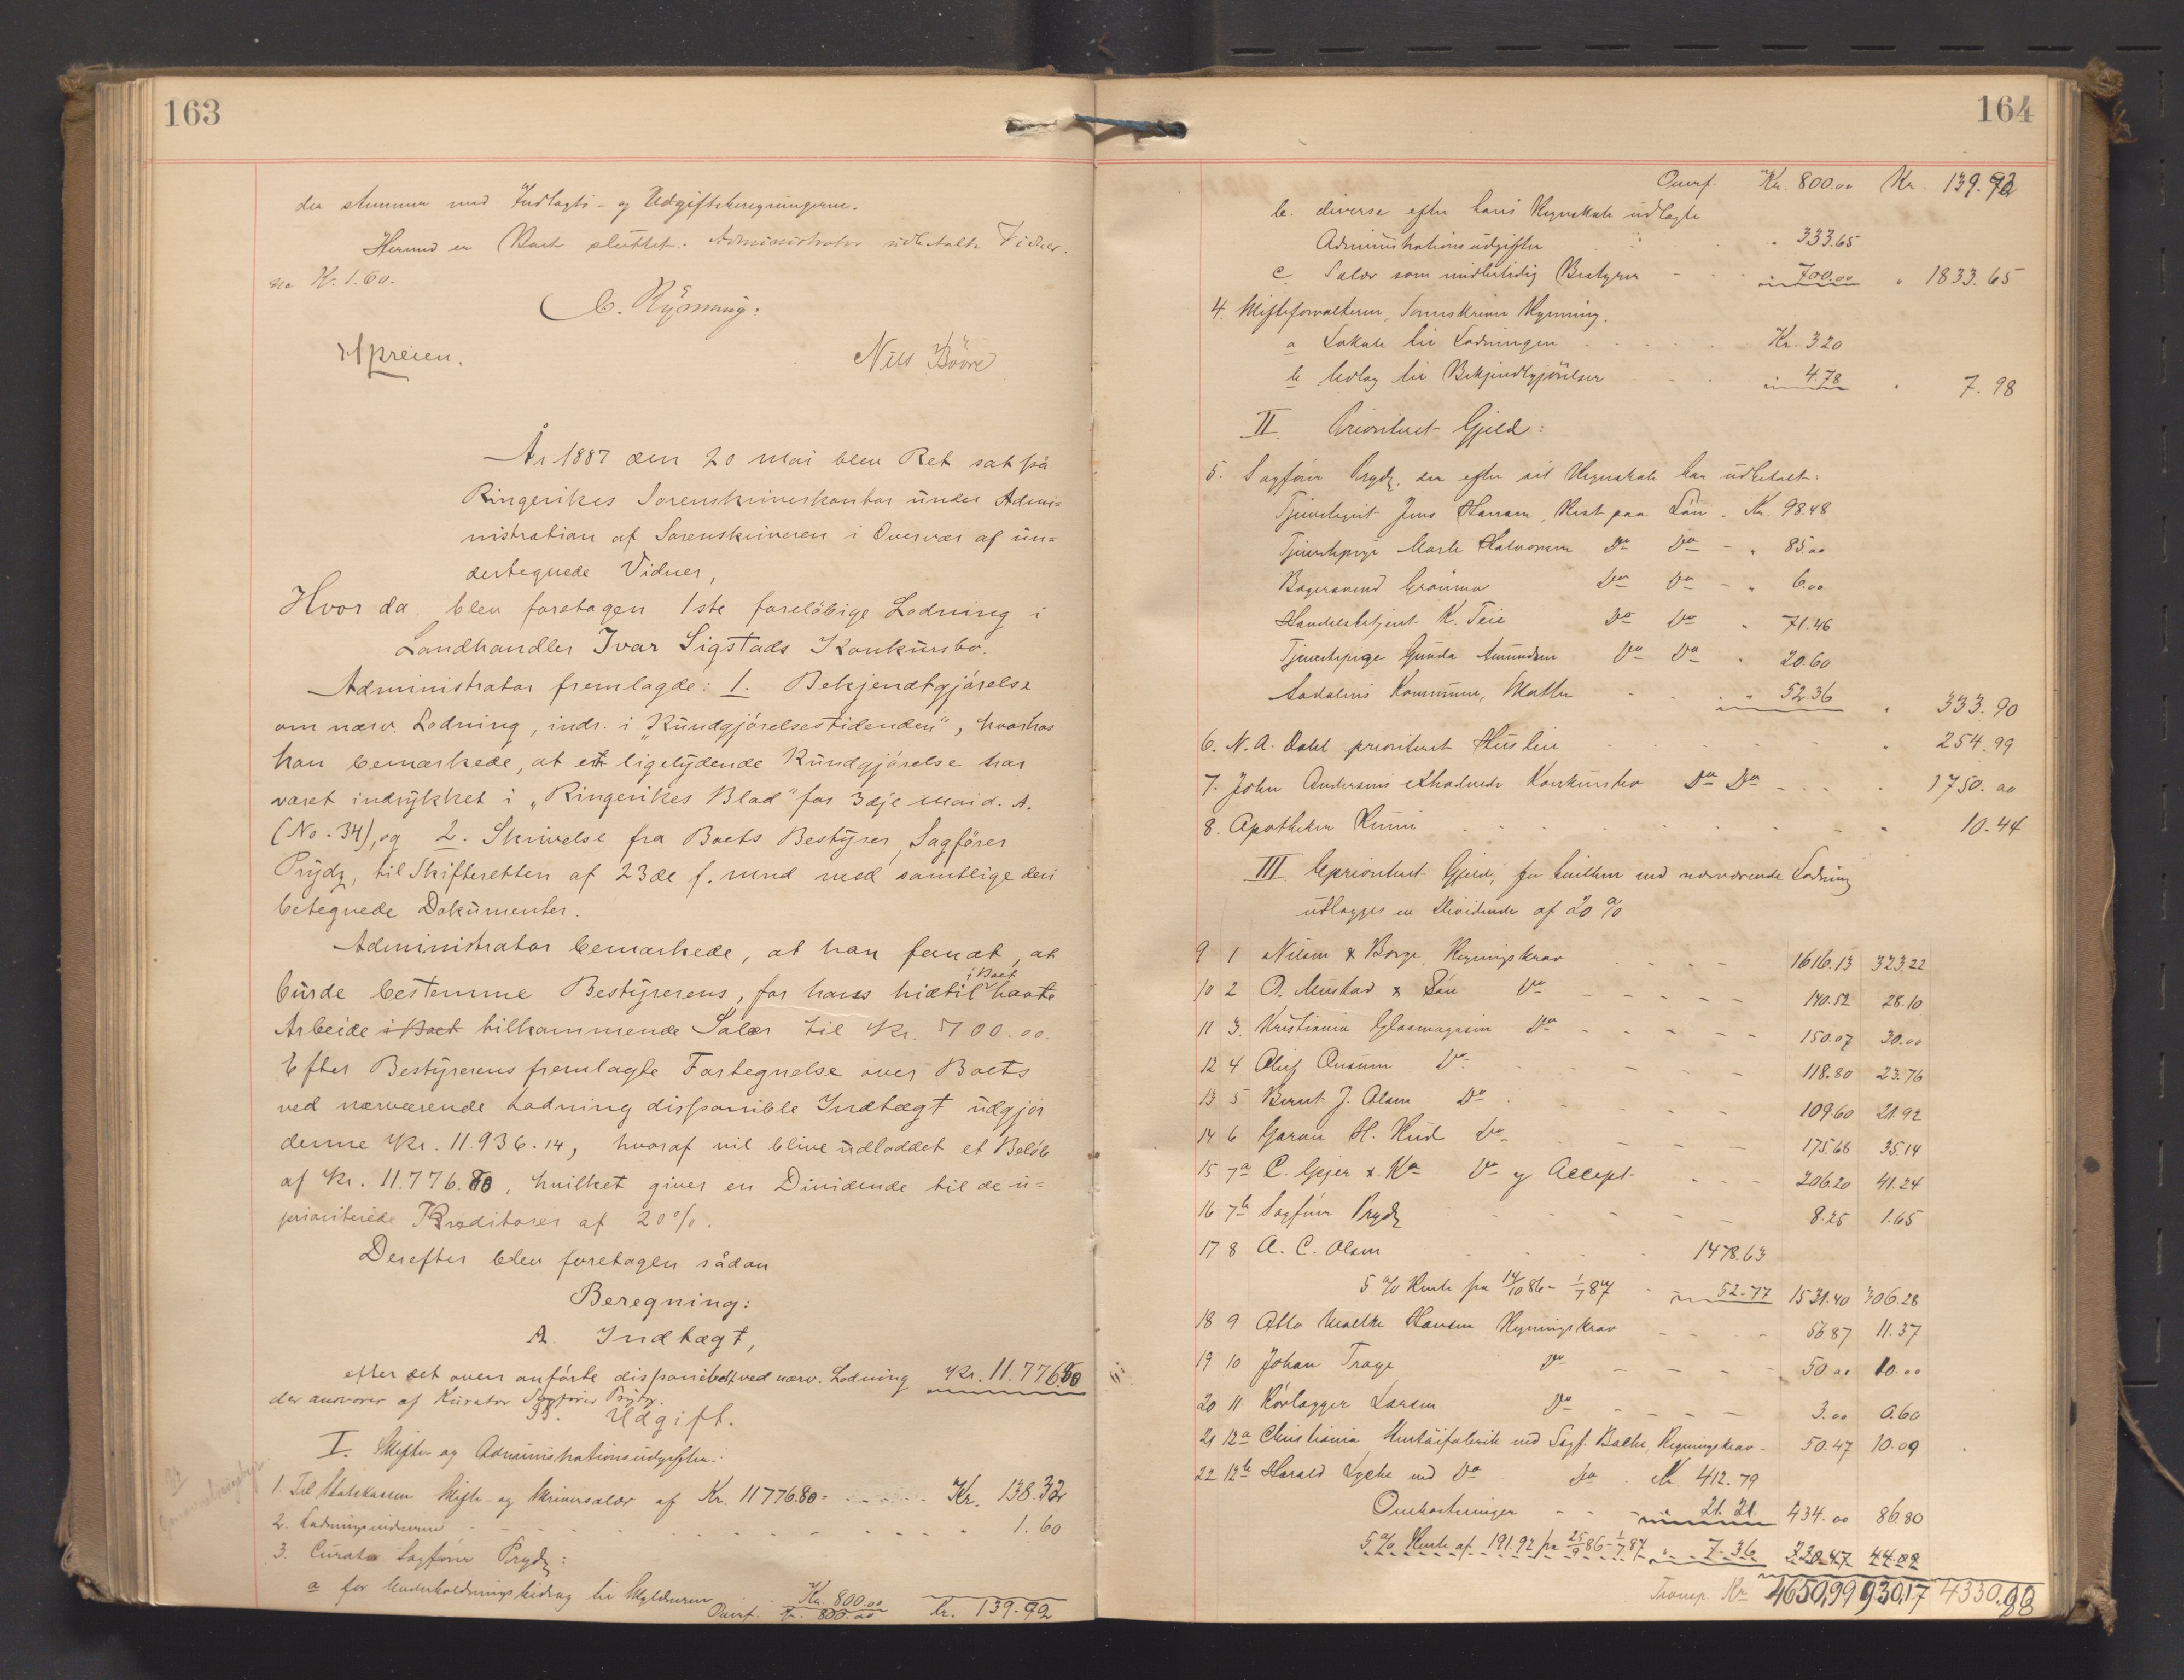 163
der stemmer med Indtægts- og Udgiftsberegningerne.
Hermed er Boet sluttet. Administrator udbetalte Vidner-
ne Kr. 1.60.
C. Rynning.
Spreien.
Nils Bööre
År 1887 den 20 Mai blev Ret sat på
Ringerikes Sorenskriverkontor under Admi-
nistration af Sorenskriveren i Overvær af un-
dertegnede Vidner,
Hvor da blev foretagen 1ste foreløbige Lodning i
Landhandler Ivar Sigstads Konkursbo.
Administrator fremlagde: 1. Bekjendtgjørelse
om nærv. Lodning, indr. i „Kundgjørelsestidenden“, hvorhos
han bemærkede, at en ligelydende Kundgjørelse har
været indrykket i „Ringerikes Blad“ for 3dje Mai d. A.
(No. 34), og 2. Skrivelse fra Boets Bestyrer, Sagfører
Prydz, til Skifteretten af 23de f. Mnd med samtlige deri
betegnede Dokumenter.
Administrator bemærkede, at han fandt, at
burde bestemme Bestyrerens, for hans hidtil i Boet havte
Arbeide i Boet tilkommende Salær til Kr. 700.00.
Efter Bestyrerens fremlagte Fortegnelse over Boets
ved nærværende Lodning disponible Indtægt udgjør
denne Kr. 11.936.14, hvoraf vil blive udloddet et Beløb
af Kr. 11.776.80, hvilket giver en Dividende til de u-
prioriterede Kreditorer af 20%.
Derefter blev foretagen sådan
Beregning:
A. Indtægt,
efter det oven anførte disponibelt ved nærv. Lodning Kr. 11.776.80
der ansvares af Kurator Sagfører Prydz.
B. Udgift.
I. Skifte- og Administrationsudgifter:
1. Til Statskassen Skifte- og Skriversalær af Kr. 11776.80 - Kr. 138.32
2. Lodningsvidnerne 1.60
3. Curator Sagfører Prydz:
a for Underholdningsbidrag til Skyldneren Kr. 800.00
Overf. Kr. 800.00 Kr. 139.92
164
Overf. Kr. 800.00 Kr. 139.92
b. diverse efter hans Regnskab udlagte
Administrationsudgifter " 333.65
c Salær som midlertidig Bestyrer " 700.00 " 1833.65
4. Skifteforvalteren, Sorenskriver Rynning.
a Lokale til Lodningen Kr. 3.20
b Udlæg til Bekjendtgjørelser " 4.78 " 7.98
II. Prioriteret Gjeld:
5. Sagfører Prydz, der efter sit Regnskab har udbetalt:
Tjenestegut Jens Hansen, Rest paa Løn - Kr. 98.48
Tjenestepige Marte Halvorsen Do Do - " 85.00
Bagersvend Do Do - " 6.00
Handelsbetjent K. Teie Do Do " 71.46
Tjenestepige Gunda Amundsen Do Do " 20.60
Aadalens Kommune, Skatter " 52.36 " 333.90
6. N. A. Dahl prioriteret Husleie " 254.99
7. John Andersens extraherede Konkursbo Do Do " 1750.00
8. Apotheker 10.44
III. Uprioriteret Gjeld, for hvilken ved nærværende Lodning
udlægges en Dividende af 20%
9 1 Nilsen & Borge, Regningskrav 1616.13 323.22
10 2 O. Mustad & Søn Do 140.52 28.10
11 3. Kristiania Glasmagasin Do 150.07 30.00
12 4 Oluf Do 118.80 23.76
13 5 Bernt J. Olsen Do 109.60 21.92
14 6 H. Do 175.68 35.14
15 7a C. Geijer & Ko Do og Accept - 206.20 41.24
16 7b Sagfører Prydz 8.25 1.65
17 8 A. C. Olsen 1478.63
5% Rente fra 14/10 86 - 1/7 87 " 52.77 1531.40 306.28
18 9 Otto Moltke Hansen Regningskrav 56.87 11.37
19 10 Johan Trage Do 50.00 10.00
20 11 Rørlægger Larsen Do 3.00 0.60
21 12a Christiania ved Sagf. Bache, Regningskrav - 50.47 10.09
22 12b Harald Lyche ved Do Do Kr. 412.79
Omkostninger " 21.21 434.00 86.80
5% Rente af 191.92 fra 25/9 86 - 1/7 87 " 7.36 220.47 44.09
Transp. Kr. 4650,99 930,17 4330.88